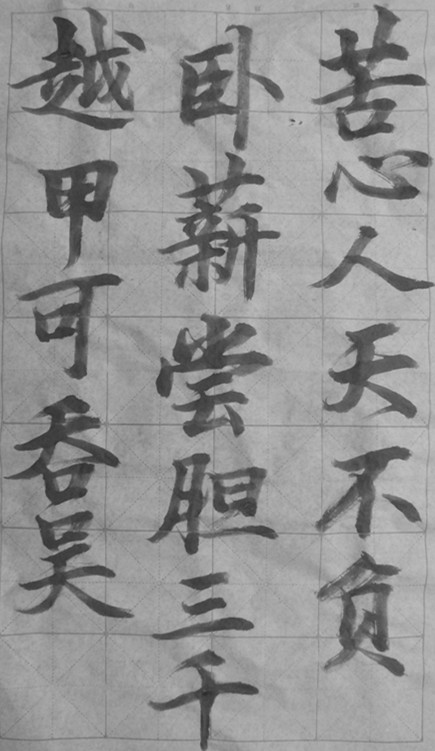 苦心人天不负
卧薪尝胆三千
越甲可吞吴